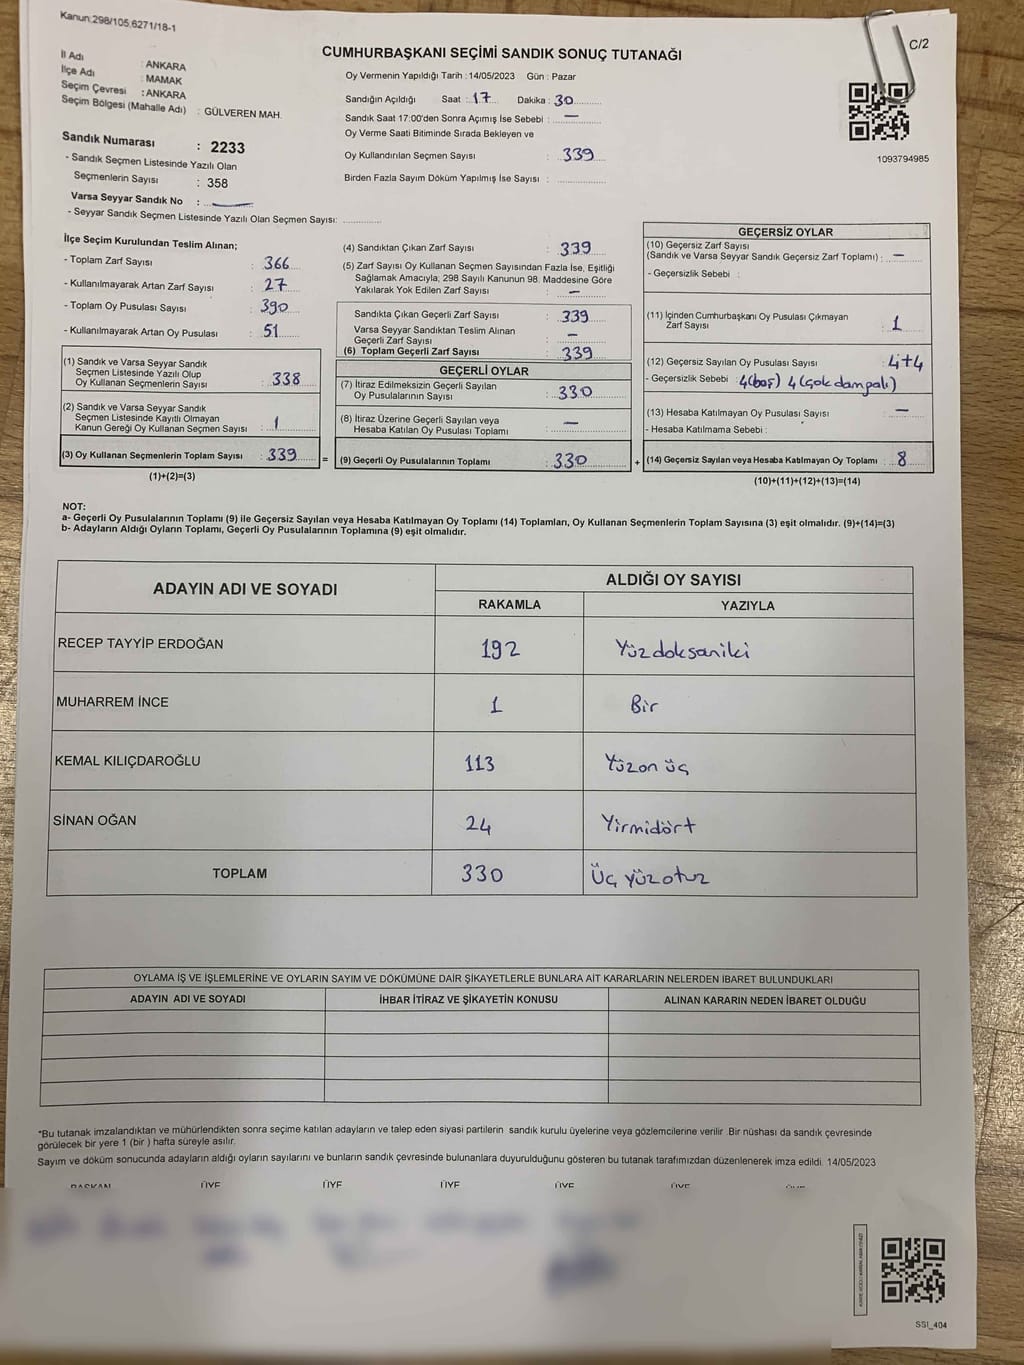 Kanun:298/105,6271/18-1
C/2
CUMHURBAŞKANI SEÇİMİ SANDIK SONUÇ TUTANAĞI
İl Adı : ANKARA
İlçe Adı : MAMAK
Seçim Çevresi : ANKARA
Seçim Bölgesi (Mahalle Adı) : GÜLVEREN MAH.
Sandık Numarası : 2233
- Sandık Seçmen Listesinde Yazılı Olan
Seçmenlerin Sayısı : 358
Varsa Seyyar Sandık No :
- Seyyar Sandık Seçmen Listesinde Yazılı Olan Seçmen Sayısı:
Oy Vermenin Yapıldığı Tarih : 14/05/2023 Gün : Pazar
Sandığın Açıldığı Saat : 17 Dakika : 30
Sandık Saat 17:00'den Sonra Açımış İse Sebebi : —
Oy Verme Saati Bitiminde Sırada Bekleyen ve
Oy Kullandırılan Seçmen Sayısı : 339
Birden Fazla Sayım Döküm Yapılmış İse Sayısı :
1093794985
İlçe Seçim Kurulundan Teslim Alınan;
- Toplam Zarf Sayısı : 366
- Kullanılmayarak Artan Zarf Sayısı : 27
- Toplam Oy Pusulası Sayısı : 390
- Kullanılmayarak Artan Oy Pusulası : 51
(1) Sandık ve Varsa Seyyar Sandık
Seçmen Listesinde Yazılı Olup
Oy Kullanan Seçmenlerin Sayısı : 338
(2) Sandık ve Varsa Seyyar Sandık
Seçmen Listesinde Kayıtlı Olmayan
Kanun Gereği Oy Kullanan Seçmen Sayısı : 1
(3) Oy Kullanan Seçmenlerin Toplam Sayısı : 339 =
(1)+(2)=(3)
(4) Sandıktan Çıkan Zarf Sayısı : 339
(5) Zarf Sayısı Oy Kullanan Seçmen Sayısından Fazla İse, Eşitliği
Sağlamak Amacıyla; 298 Sayılı Kanunun 98. Maddesine Göre
Yakılarak Yok Edilen Zarf Sayısı : —
Sandıkta Çıkan Geçerli Zarf Sayısı : 339
Varsa Seyyar Sandıktan Teslim Alınan
Geçerli Zarf Sayısı : —
(6) Toplam Geçerli Zarf Sayısı : 339
GEÇERLİ OYLAR
(7) İtiraz Edilmeksizin Geçerli Sayılan
Oy Pusulalarının Sayısı : 330
(8) İtiraz Üzerine Geçerli Sayılan veya
Hesaba Katılan Oy Pusulası Toplamı : —
(9) Geçerli Oy Pusulalarının Toplamı : 330 +
GEÇERSİZ OYLAR
(10) Geçersiz Zarf Sayısı
(Sandık ve Varsa Seyyar Sandık Geçersiz Zarf Toplamı) : —
- Geçersizlik Sebebi :
(11) İçinden Cumhurbaşkanı Oy Pusulası Çıkmayan
Zarf Sayısı : 1
(12) Geçersiz Sayılan Oy Pusulası Sayısı : 4+4
- Geçersizlik Sebebi : 4(boş) 4(çok dampalı)
(13) Hesaba Katılmayan Oy Pusulası Sayısı : —
- Hesaba Katılmama Sebebi :
(14) Geçersiz Sayılan veya Hesaba Katılmayan Oy Toplamı : 8
(10)+(11)+(12)+(13)=(14)
NOT:
a- Geçerli Oy Pusulalarının Toplamı (9) ile Geçersiz Sayılan veya Hesaba Katılmayan Oy Toplamı (14) Toplamları, Oy Kullanan Seçmenlerin Toplam Sayısına (3) eşit olmalıdır. (9)+(14)=(3)
b- Adayların Aldığı Oyların Toplamı, Geçerli Oy Pusulalarının Toplamına (9) eşit olmalıdır.
ADAYIN ADI VE SOYADI ALDIĞI OY SAYISI
RAKAMLA YAZIYLA
RECEP TAYYİP ERDOĞAN 192 Yüzdoksaniki
MUHARREM İNCE 1 Bir
KEMAL KILIÇDAROĞLU 113 Yüzon üç
SİNAN OĞAN 24 Yirmidört
TOPLAM 330 Üç yüzotuz
OYLAMA İŞ VE İŞLEMLERİNE VE OYLARIN SAYIM VE DÖKÜMÜNE DAİR ŞİKAYETLERLE BUNLARA AİT KARARLARIN NELERDEN İBARET BULUNDUKLARI
ADAYIN ADI VE SOYADI İHBAR İTİRAZ VE ŞİKAYETİN KONUSU ALINAN KARARIN NEDEN İBARET OLDUĞU
*Bu tutanak imzalandıktan ve mühürlendikten sonra seçime katılan adayların ve talep eden siyasi partilerin sandık kurulu üyelerine veya gözlemcilerine verilir .Bir nüshası da sandık çevresinde
görülecek bir yere 1 (bir ) hafta süreyle asılır.
Sayım ve döküm sonucunda adayların aldığı oyların sayılarını ve bunların sandık çevresinde bulunanlara duyurulduğunu gösteren bu tutanak tarafımızdan düzenlenerek imza edildi. 14/05/2023
BAŞKAN ÜYE ÜYE ÜYE ÜYE ÜYE
SSI_404